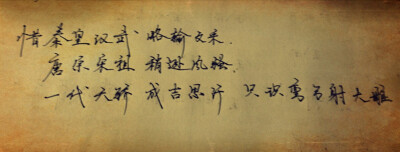 惜秦皇汉武 略输文采.
唐宗宋祖 稍逊风骚.
一代天骄 成吉思汗 只识弯弓射大雕